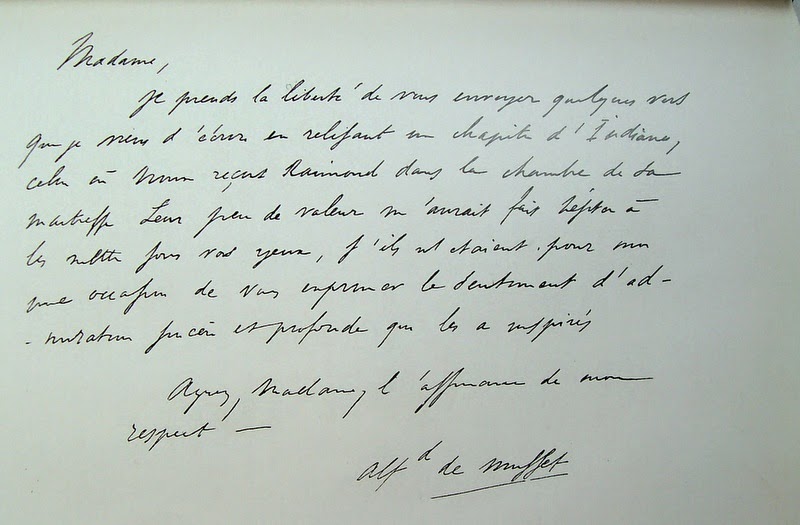 Madame,
je prends la liberté de vous envoyer quelques vers
que je viens d'écrire en relisant un chapitre d'Indiana,
celui où Noun reçoit Raimond dans la chambre de sa
maitresse Leur peu de valeur m'aurait fait hésiter à
les mettre sous vos yeux, s'ils n'étaient pour moi
une occasion de vous exprimer le sentiment d'ad-
-miration sincère et profonde qui les a inspirés
Agréez, Madame, l'assurance de mon
respect —
Alfd de Musset